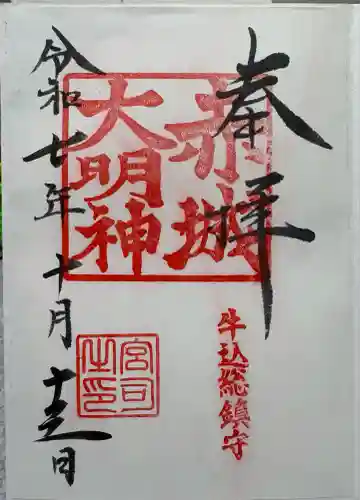 奉拝
赤城
大明神
牛込総鎮守
宮司
之印
令和七年十月十 日